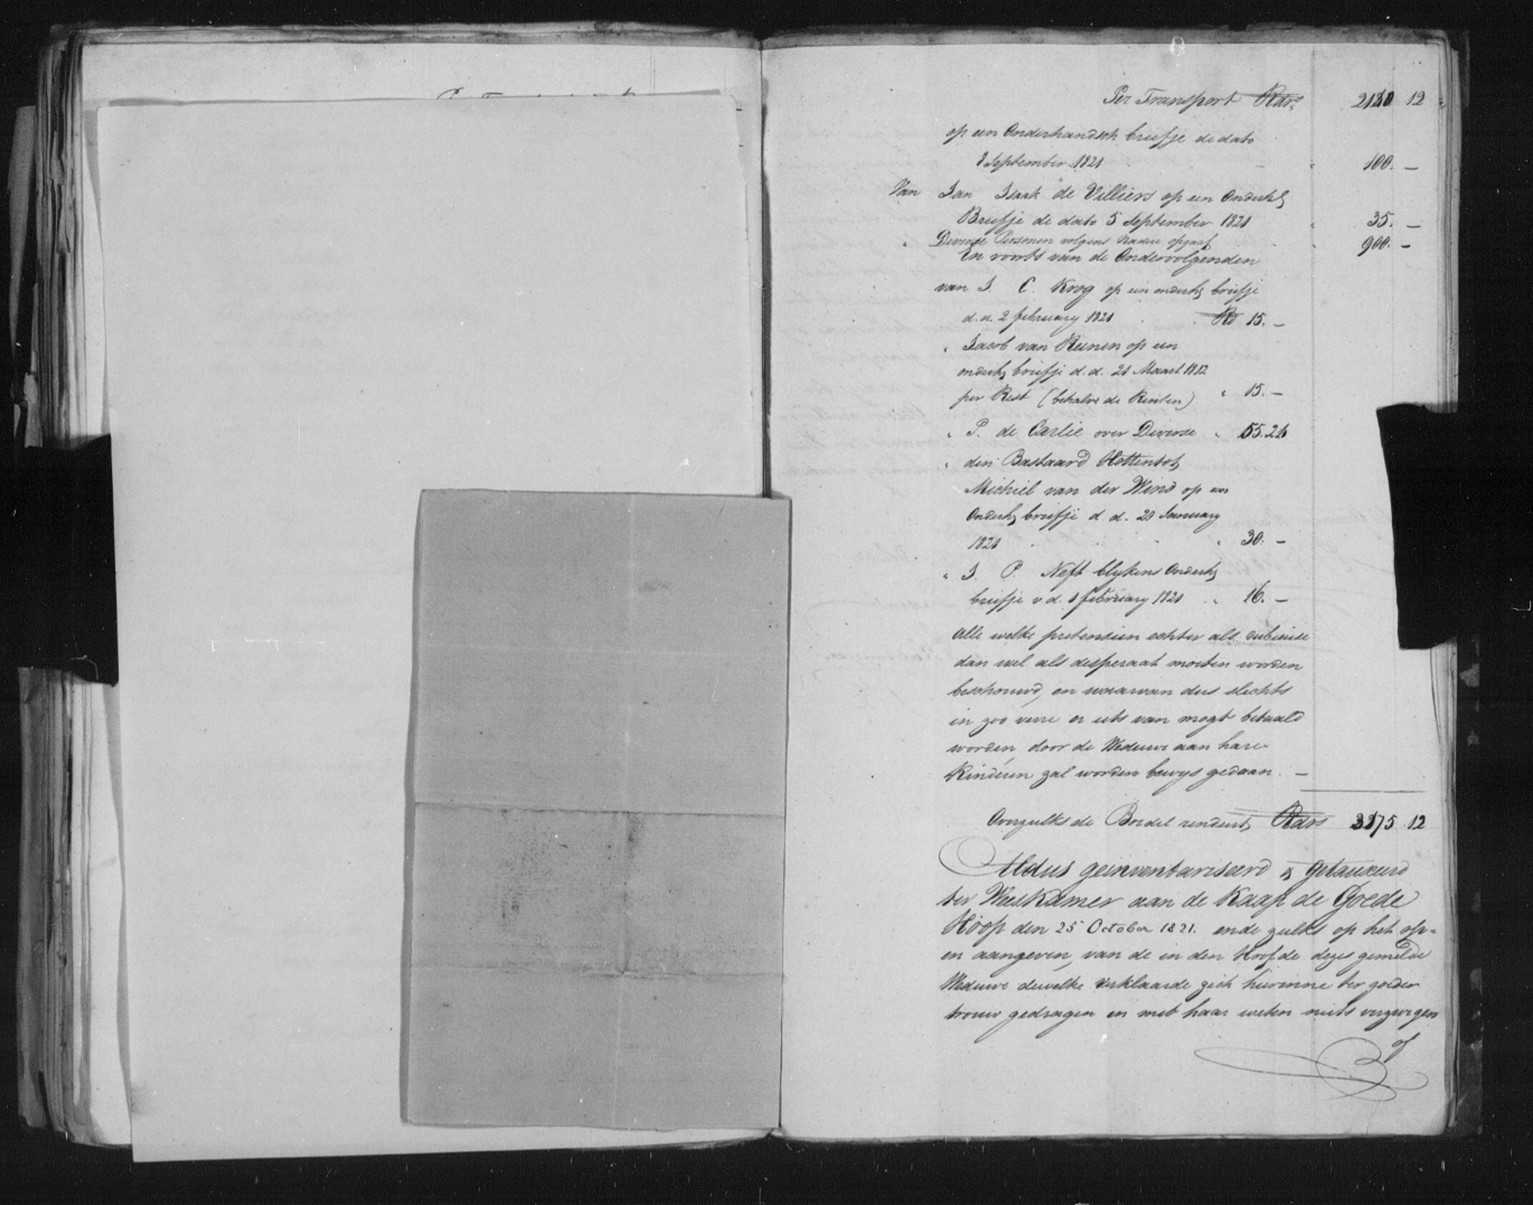 Per Transport Rdrs 2140 12
op een Onderhandsch briefje de dato
3 September 1821 " 100. –
Van Jan Isaak de Villiers op een Onderh:
Briefje de dato 5 September 1821 " 35. –
" Diverse Personen volgens Nadere opgaaf " 900. –
En voorts van de Ondervolgenden
van J. C. Krog op een onderh: briefje
d. d. 2 february 1821 Rd 15. –
" Jacob van Reenen op een
onderh: briefje d. d. 21 Maart 1812
per Rest (behalve de Renten) " 15. –
" P. de Carlie over Diverse " 55. 26
" den Bastaard Hottentot
Michiel van der Wind op een
Onderh: briefje d. d. 20 January
1821 " 30. –
" J. P. Neft blykens Onderh:
briefje v. d. 1 february 1821 " 16. –
Alle welke pretensien echter als dubieuse
dan wel als desperaat moeten worden
beschouwd, en waarvan dus slechts
in zoo verre er iets van mogt betaald
worden, door de Weduwe aan hare
Kinderen zal worden bewys gedaan. –
Overzulks de Boedel rendeert Rdrs 3175 12
Aldus geinventariseerd & Getauxeerd
ter Weeskamer aan de Kaap de Goede
Hoop den 25 October 1821. ende zulks op het op-
en aangeven, van de in den Hoofde dezes gemelde
Weduwe dewelke verklaarde zich hierinne ter goeder
trouw gedragen en met haar weten niets verzwegen